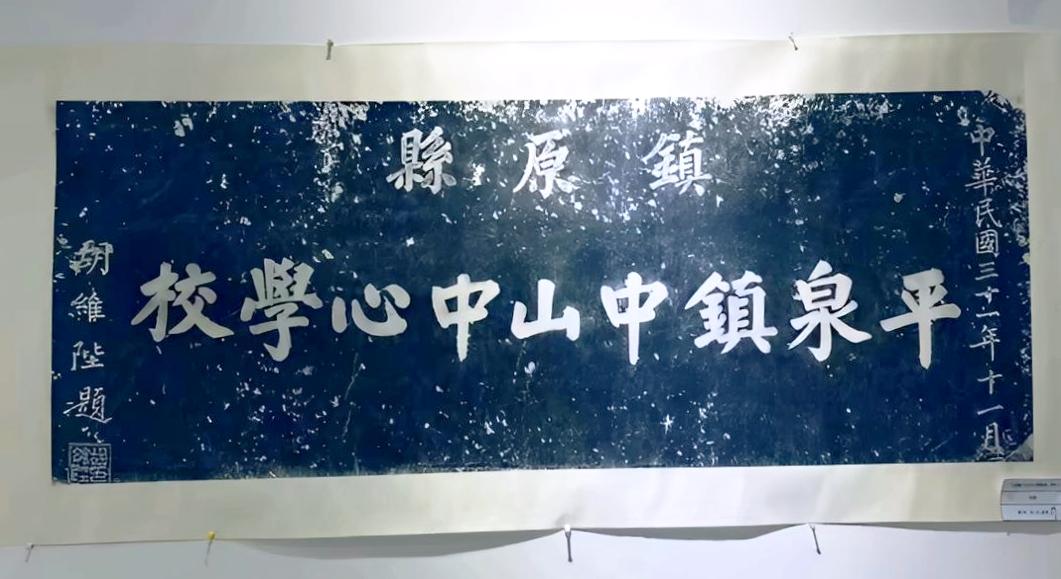 中華民國三十一年十一月
鎮原縣
平泉鎮中山中心學校
胡維陛題